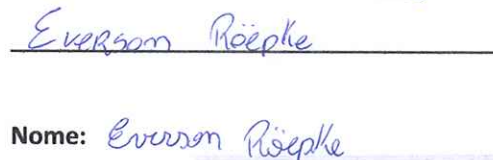 Everson Röepke
Nome: Everson Röepke